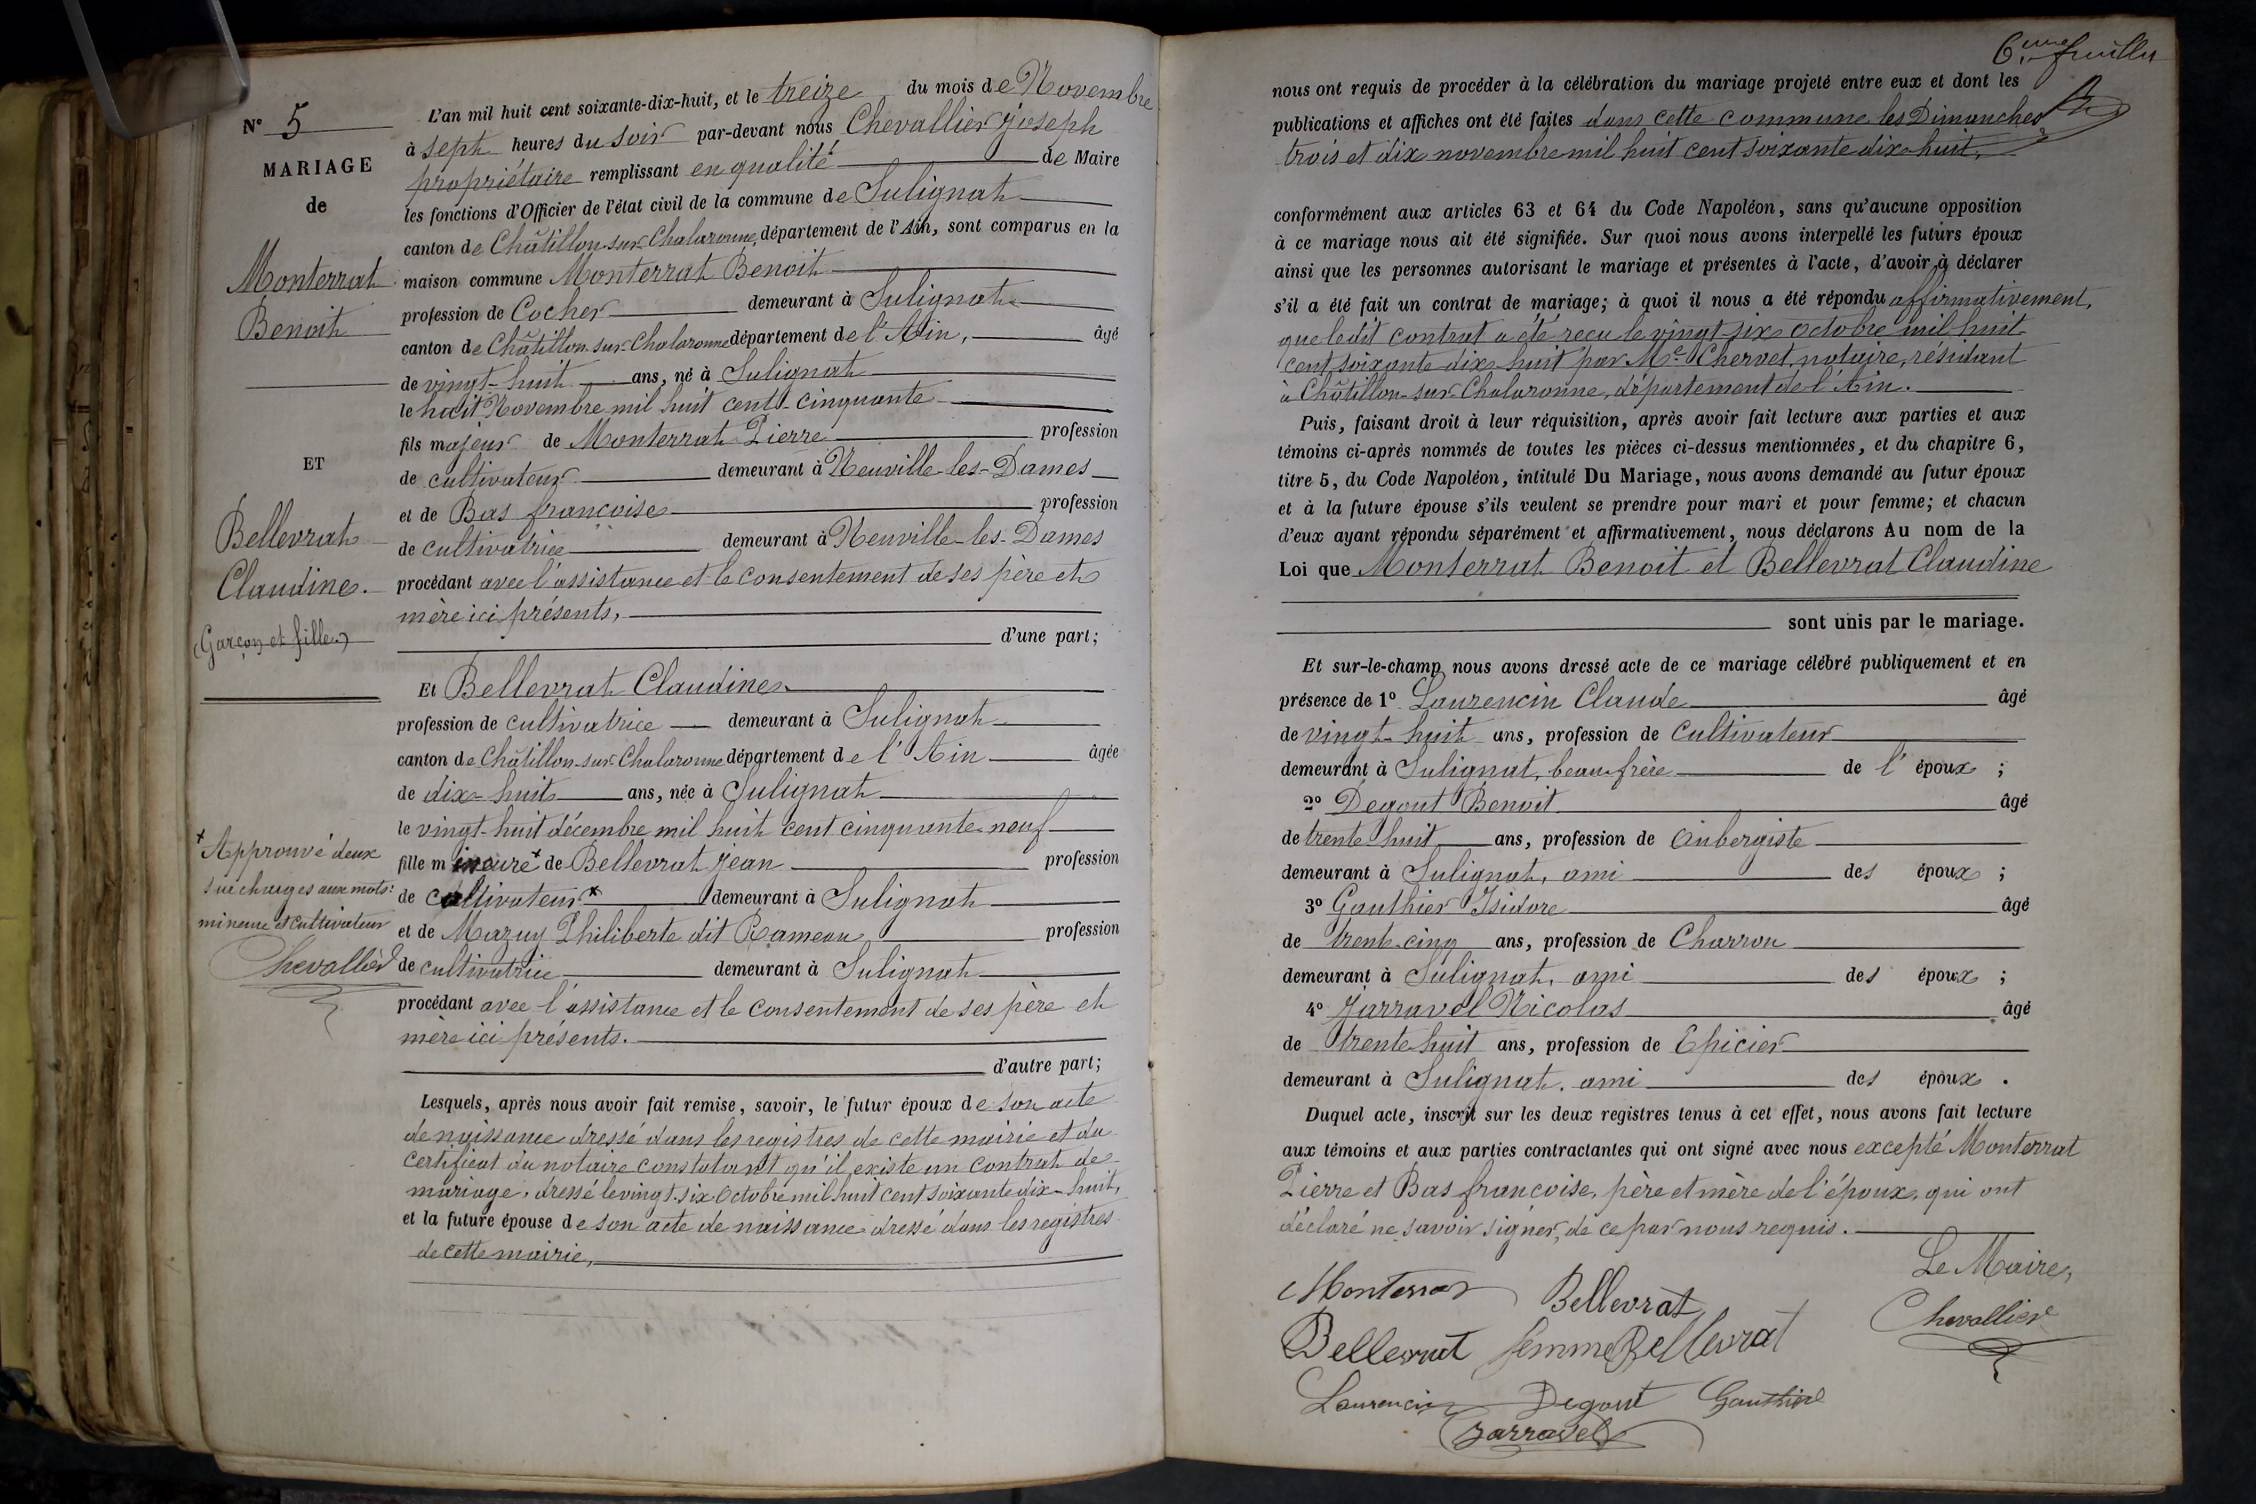 N° 5
MARIAGE
de
Monterrat
Benoit
ET
Bellevrat
Claudine.
(Garçon et fille)
+ Approuvé deux
surcharges aux mots:
mineure et cultivateur
Chevallier
L'an mil huit cent soixante-dix-huit, et le treize du mois de Novembre
à sept heures du soir par-devant nous Chevallier Joseph
propriétaire remplissant en qualité de Maire
les fonctions d'Officier de l'état civil de la commune de Sulignat
canton de Châtillon-sur-Chalaronne, département de l'Ain, sont comparus en la
maison commune Monterrat Benoit
profession de Cocher demeurant à Sulignat
canton de Châtillon-sur-Chalaronne département de l'Ain, âgé
de vingt-huit ans, né à Sulignat
le huit Novembre mil huit cent cinquante
fils majeur de Monterrat Pierre profession
de cultivateur demeurant à Neuville-les-Dames
et de Bas françoise profession
de cultivatrice demeurant à Neuville-les-Dames
procédant avec l'assistance et le consentement de ses père et
mère ici présents,
d'une part;
Et Bellevrat Claudine
profession de cultivatrice demeurant à Sulignat
canton de Châtillon-sur-Chalaronne département de l'Ain âgée
de dix-huit ans, née à Sulignat
le vingt-huit décembre mil huit cent cinquante neuf
fille mineure + de Bellevrat Jean profession
de cultivateur + demeurant à Sulignat
et de Mazuy Philiberte dit Rameau profession
de cultivatrice demeurant à Sulignat
procédant avec l'assistance et le consentement de ses père et
mère ici présents.
d'autre part;
Lesquels, après nous avoir fait remise, savoir, le futur époux de son acte
de naissance dressé dans les registres de cette mairie et du
certificat du notaire constatant qu'il existe un contrat de
mariage, dressé le vingt-six Octobre mil huit cent soixante dix-huit,
et la future épouse de son acte de naissance dressé dans les registres
de cette mairie,
6eme feuillet
nous ont requis de procéder à la célébration du mariage projeté entre eux et dont les
publications et affiches ont été faites dans cette commune les Dimanches
trois et dix novembre mil huit cent soixante dix-huit,
conformément aux articles 63 et 64 du Code Napoléon, sans qu'aucune opposition
à ce mariage nous ait été signifiée. Sur quoi nous avons interpellé les futurs époux
ainsi que les personnes autorisant le mariage et présentes à l'acte, d'avoir à déclarer
s'il a été fait un contrat de mariage; à quoi il nous a été répondu affirmativement,
que ledit contrat a été reçu le vingt six octobre mil huit
cent soixante dix huit par Me Chervet, notaire, résidant
à Châtillon-sur-Chalaronne, département de l'Ain.
Puis, faisant droit à leur réquisition, après avoir fait lecture aux parties et aux
témoins ci-après nommés de toutes les pièces ci-dessus mentionnées, et du chapitre 6,
titre 5, du Code Napoléon, intitulé Du Mariage, nous avons demandé au futur époux
et à la future épouse s'ils veulent se prendre pour mari et pour femme; et chacun
d'eux ayant répondu séparément et affirmativement, nous déclarons Au nom de la
Loi que Monterrat Benoit et Bellevrat Claudine
sont unis par le mariage.
Et sur-le-champ nous avons dressé acte de ce mariage célébré publiquement et en
présence de 1° Laurencin Claude âgé
de vingt-huit ans, profession de cultivateur
demeurant à Sulignat, beau-frère de l'époux;
2° Degout Benoit âgé
de trente huit ans, profession de Aubergiste
demeurant à Sulignat, ami des époux;
3° Gauthier Isidore âgé
de trente-cinq ans, profession de Charron
demeurant à Sulignat, ami des époux;
4° Jarravel Nicolas âgé
de trente huit ans, profession de Epicier
demeurant à Sulignat, ami des époux.
Duquel acte, inscrit sur les deux registres tenus à cet effet, nous avons fait lecture
aux témoins et aux parties contractantes qui ont signé avec nous excepté Monterrat
Pierre et Bas françoise, père et mère de l'époux, qui ont
déclaré ne savoir signer, de ce par nous requis.
Le Maire,
Monterrat Bellevrat
Chevallier
Bellevrat femme Bellevrat
Laurencin Degout Gauthier
Jarravel